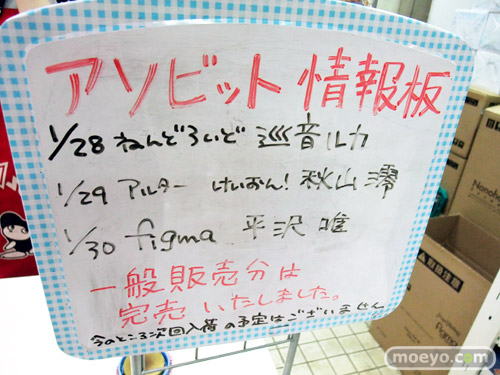 アソビット 情報板
1/28 ねんどろいど 巡音ルカ
1/29 アルター けいおん! 秋山 澪
1/30 figma 平沢 唯
一般販売分は
完売いたしました。
今のところ次回入荷の予定はございません
moeyo.com